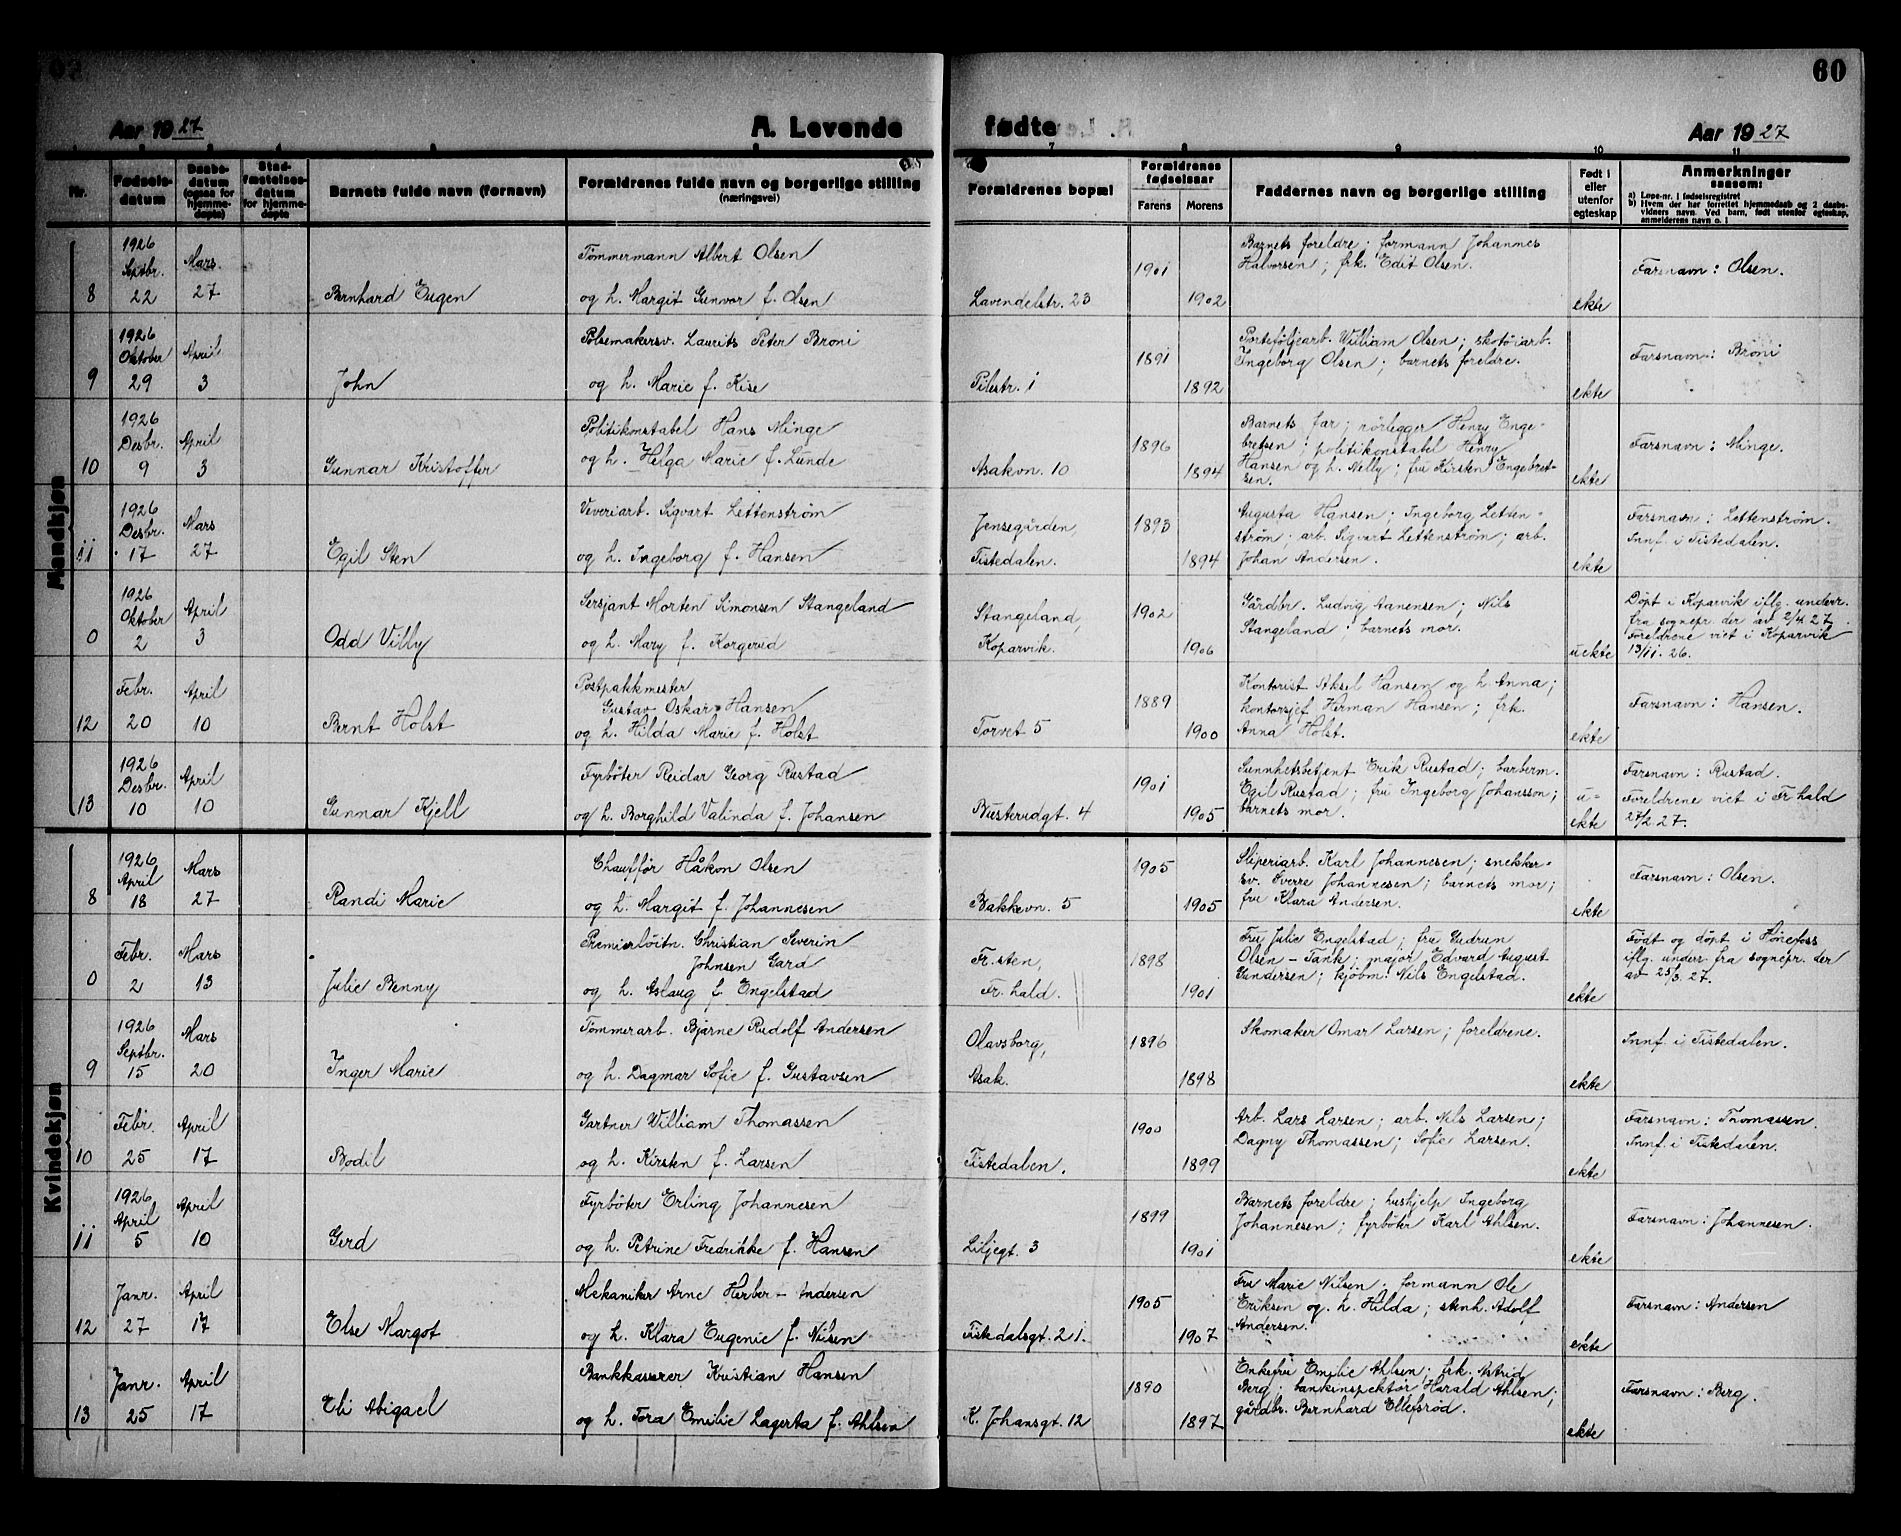 60
Aar 1927
A. Levende
fødte
Aar 1927
7 8 9 10 11
Nr.
Fødsels-
datum
Daabs-
datum
(ogsaa for
hjemme-
døpte)
Stad-
fæstelses-
datum
for hjemme-
døpte
Barnets fulde navn (fornavn)
Forældrenes fulde navn og borgerlige stilling
(næringsvei)
Forældrenes bopæl
Forældrenes
fødselsaar
Farens Morens
Faddernes navn og borgerlige stilling
Født i
eller
utenfor
egteskap
Anmerkninger
saasom:
a) Løpe-nr. i fødselsregistret
b) Hvem der har forrettet hjemmedaab og 2 daabs-
vidners navn. Ved barn, født utenfor egteskap,
anmelderens navn o. l
Mandkjøn
1926
Septbr. Mars Tømmermann Albert Olsen 1901 Barnets foreldre; formann Johannes
Halvorsen; frk. Edit Olsen. Farsnavn: Olsen.
8 22 27 Bernhard Eugen og h. Margit Gunvor f. Olsen Lavendelstr. 23 1902 ekte
1926
Oktober April Pølsemakersv. Laurits Peter Brøni 1891 Porteføljearb. William Olsen; skotøiarb.
Ingeborg Olsen; barnets foreldre. Farsnavn: Brøni
9 29 3 John og h. Marie f. Kise Pilestr. 1 1892 ekte
1926
Desbr. April Politikonstabel Hans Minge 1896 Barnets far; rørlegger Henry Enge-
bretsen; politikonstabel Henry Farsnavn: Minge.
10 9 3 Gunnar Kristoffer og h. Helga Marie f. Lunde Asakvn. 10 1894 Hansen og h. Nelly; fru Kirsten Engebret-
sen. ekte
1926
Desbr. Mars Veveriarb. Sigvart Lettenstrøm Jensegården, 1893 Augusta Hansen; Ingeborg Letten-
strøm; arb. Sigvart Lettenstrøm; arb. Farsnavn: Lettenstrøm.
Innf. i Tistedalen.
11 17 27 Egil Sten og h. Ingeborg f. Hansen Tistedalen. 1894 Johan Andersen. ekte
1926
Oktober April Sersjant Morten Simonsen Stangeland Stangeland, 1902 Gårdbr. Ludvig Aanensen; Nils
Stangeland; barnets mor. Døpt i Kopervik iflg. underr.
fra sognepr. der av 2/4 27.
0 2 3 Odd Villy og h. Mary f. Korgerud Koparvik. 1906 uekte Foreldrene viet i Koparvik
13/11. 26.
Febr. April Postpakkmester
Gustav Oskar Hansen 1889 Kontorist Aksel Hansen og h. Anna;
kontorsjef Herman Hansen; frk. Farsnavn: Hansen.
12 20 10 Bernt Holst og h. Hilda Marie f. Holst Torvet 5 1900 Anna Holst. ekte
1926
Desbr. April Fyrbøter Reidar Georg Rustad 1901 Sunnhetsbetjent Erik Rustad; barberm.
Egil Rustad; fru Ingeborg Johansson; Farsnavn: Rustad.
13 10 10 Gunnar Kjell og h. Borghild Valinda f. Johansen Busterudgt. 4 1905 barnets mor. u-
ekte Foreldrene viet i Fr.hald
27/2 27.
Kvindekjøn
1926
April Mars Chauffør Håkon Olsen 1905 Sliperiarb. Karl Johannesen; snekker-
sv. Sverre Johannesen; barnets mor; Farsnavn: Olsen.
8 18 27 Randi Marie og h. Margit f. Johannesen Bakkevn. 5 1905 fru Klara Andersen. ekte
Febr. Mars Premierløitn. Christian Severin
Johnsen Gard Fr.sten, 1898 Fru Julie Engelstad; fru Gudrun
Olsen-Tank; major Edvard August Født og døpt i Hønefoss
iflg. underr. fra sognepr. der
0 2 13 Julie Benny og h. Aslaug f. Engelstad Fr.hald. 1901 Gundersen; kjøbm. Nils Engelstad. ekte av 25/3. 27.
1926
Septbr. Mars Tømmerarb. Bjarne Rudolf Andersen Olavsborg, 1896 Skomaker Omar Larsen; foreldrene. Innf. i Tistedalen.
9 15 20 Inger Marie og h. Dagmar Sofie f. Gustavsen Asak. 1898 ekte
Febr. April Gartner William Thomassen 1900 Arb. Lars Larsen; arb. Nils Larsen;
Dagny Thomassen; Sofie Larsen. Farsnavn: Thomassen.
Innf. i Tistedalen.
10 25 17 Bodil og h. Kirsten f. Larsen Tistedalen. 1899 ekte
1926
April April Fyrbøter Erling Johannesen 1899 Barnets foreldre; hushjelp Ingeborg
Johannesen; fyrbøter Karl Ahlsen. Farsnavn: Johannesen.
11 5 10 Gerd og h. Petrine Fredrikke f. Hansen Liljegt. 3 1901 ekte
Janr. April Mekaniker Arne Herber-Andersen 1905 Fru Marie Nilsen; formann Ole
Eriksen og h. Hilda; stenh. Adolf Farsnavn: Andersen
12 27 17 Else Margot og h. Klara Eugenie f. Nilsen Tistedalsgt. 21. 1907 Andersen. ekte
Janr. April Bankkasserer Kristian Hansen 1890 Enkefru Emilie Ahlsen; frk. Astrid
Berg; bankinspektør Harald Ahlsen; Farsnavn: Berg.
13 25 17 Eli Abigael og h. Tora Emilie Lagerta f. Ahlsen K. Johansgt. 12 1897 gårdbr. Bernhard Ellefsrød. ekte